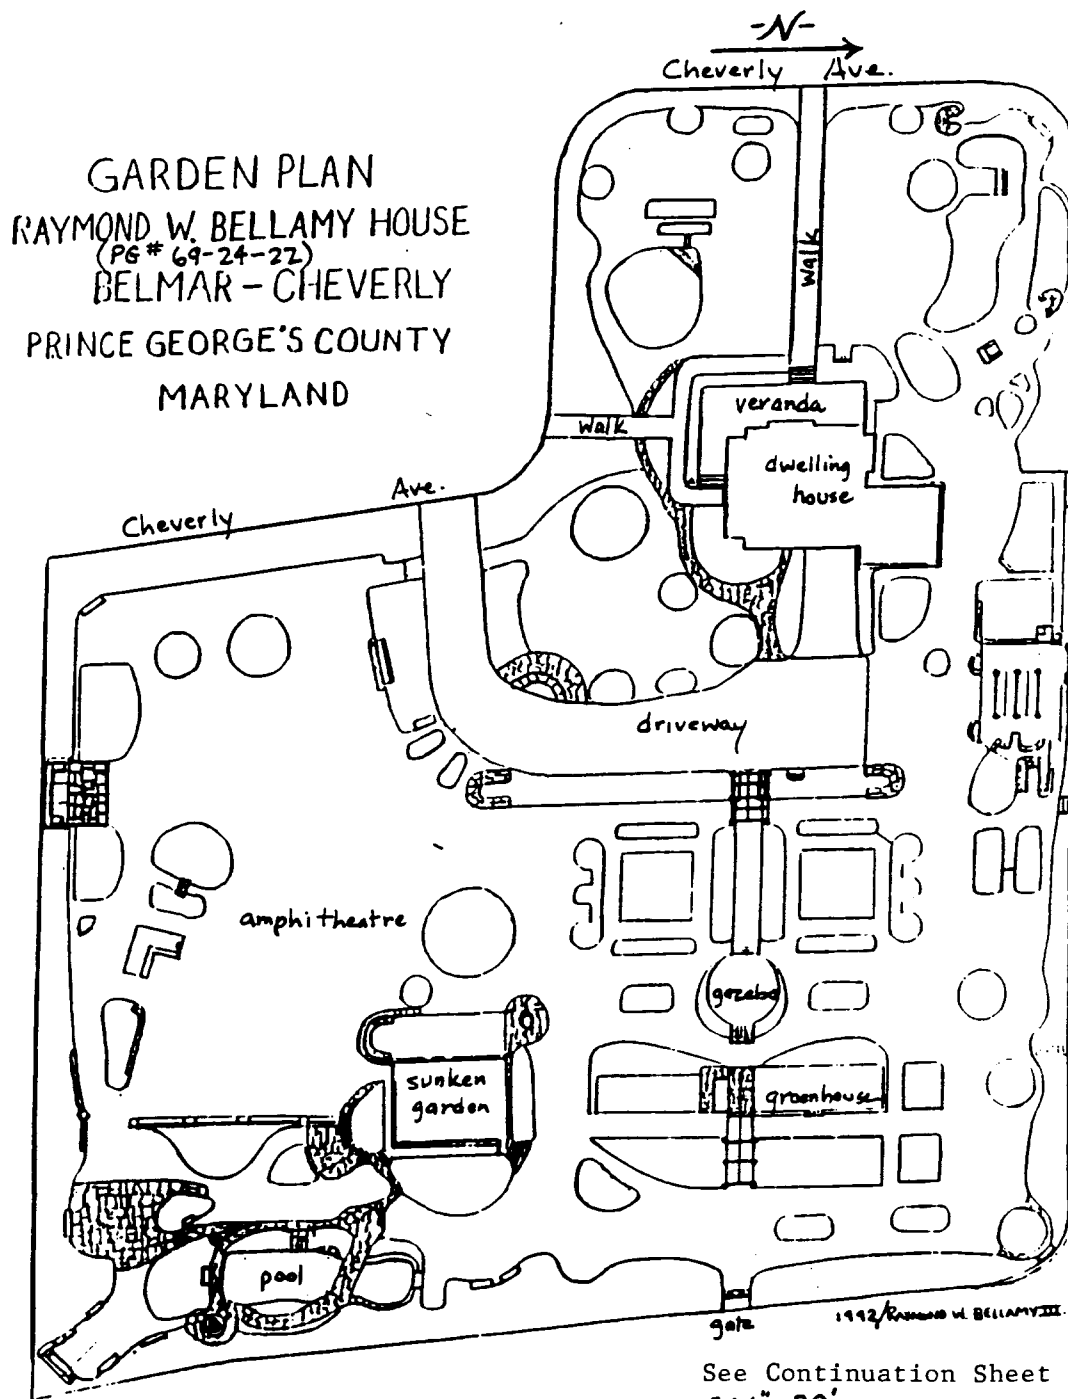 -N-
Cheverly Ave.
GARDEN PLAN
RAYMOND W. BELLAMY HOUSE
(PG # 69-24-22)
BELMAR - CHEVERLY
PRINCE GEORGE'S COUNTY
MARYLAND
walk
veranda
walk
dwelling
house
Cheverly Ave.
driveway
amphitheatre
gazebo
sunken
garden
greenhouse
pool
gate
1992/RAYMOND W. BELLAMY III.
See Continuation Sheet